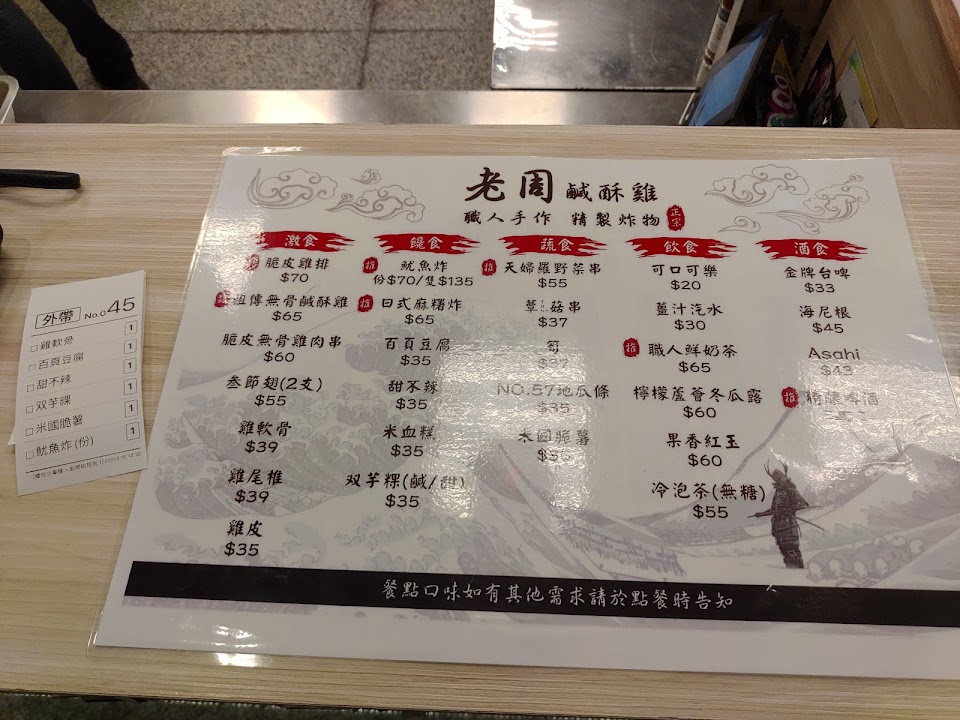 老周鹹酥雞
職人手作 精製炸物 正宗
激食
推 脆皮雞排
$70
推 祖傳無骨鹹酥雞
$65
脆皮無骨雞肉串
$60
叁節翅(2支)
$55
雞軟骨
$39
雞尾椎
$39
雞皮
$35
饞食
推 魷魚炸
份$70/隻$135
推 日式麻糬炸
$65
百頁豆腐
$35
甜不辣
$35
米血糕
$35
双芋粿(鹹/甜)
$35
蔬食
推 天婦羅野菜串
$55
菇串
$37
筍
$37
NO.57地瓜條
$35
米國脆薯
飲食
可口可樂
$20
薑汁汽水
$30
推 職人鮮奶茶
$65
檸檬蘆薈冬瓜露
$60
果香紅玉
$60
冷泡茶(無糖)
$55
酒食
金牌台啤
$33
海尼根
$45
Asahi
$43
推 精釀啤酒
餐點口味如有其他需求請於點餐時告知
外帶 No.045
雞軟骨 1
百頁豆腐 1
甜不辣 1
双芋粿 1
米國脆薯 1
魷魚炸(份) 1